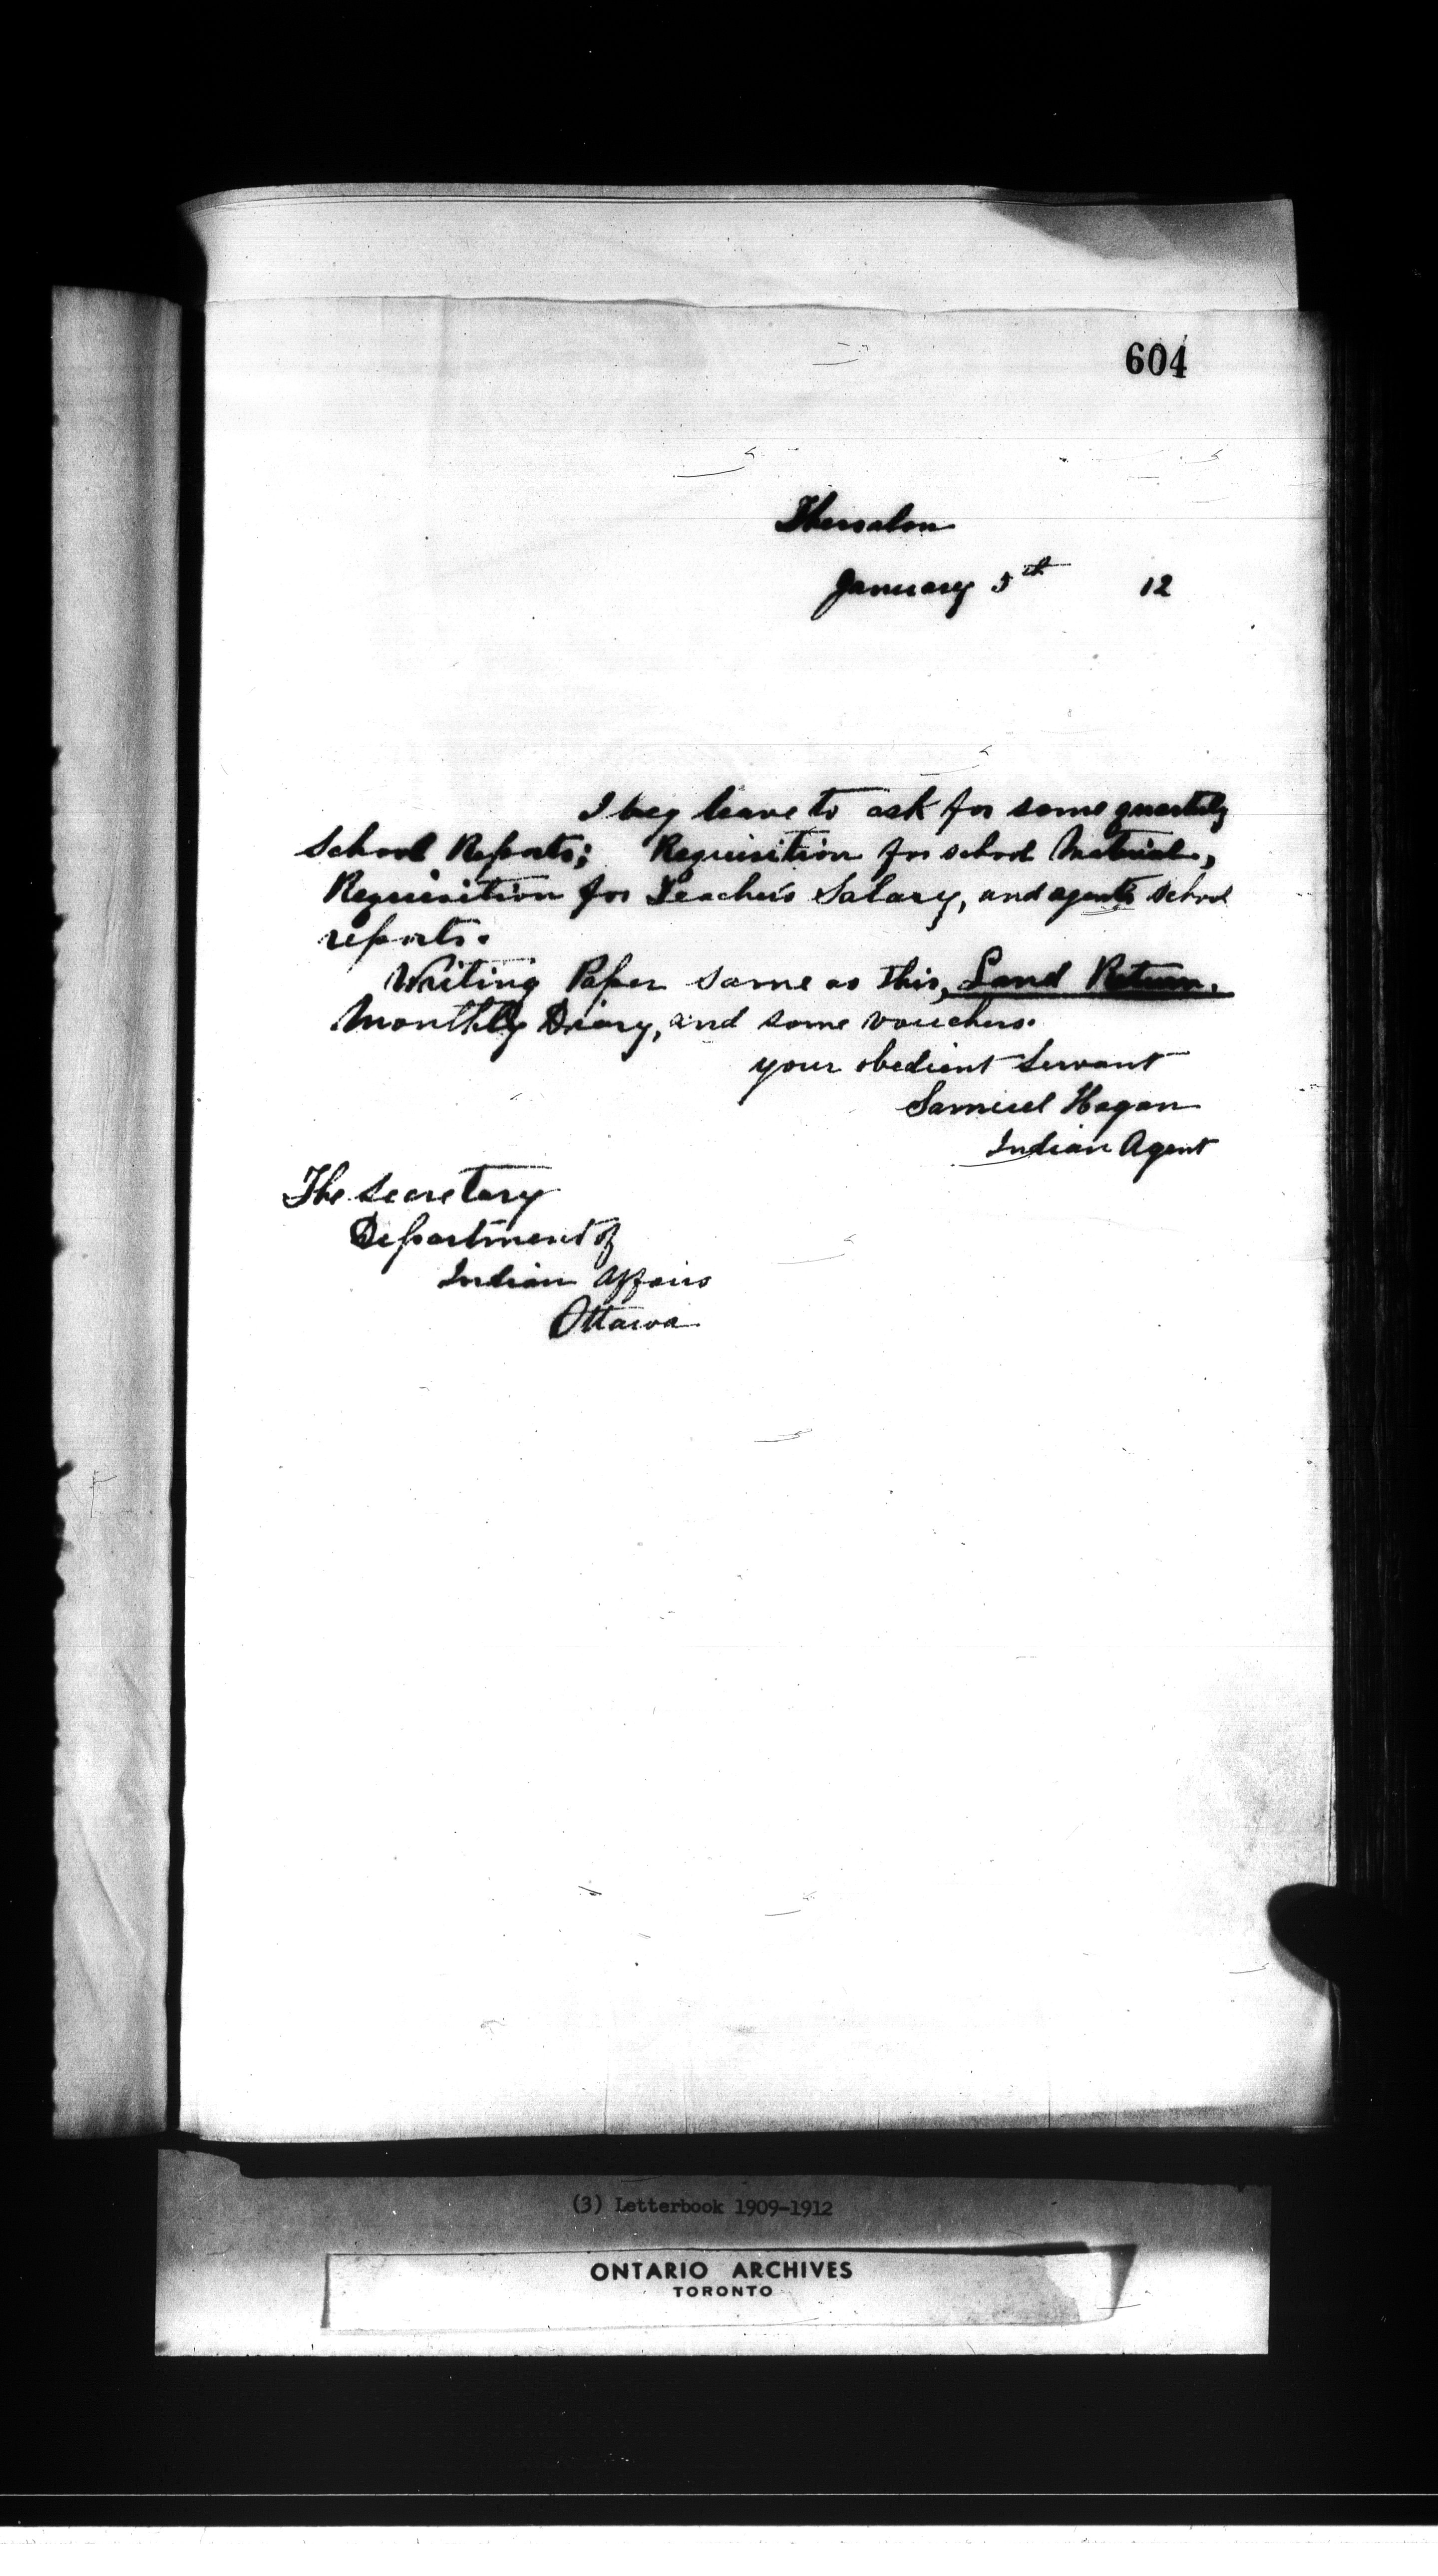 604
Thessalon
January 5th 12
I beg leave to ask for some quarterly
School Reports; Requisition for school Material,
Requisition for Teacher's Salary, and agents school
reports.
Writing Paper same as this, Land Return,
Monthly Diary, and some vouchers.
your obedient Servant
Samuel Hagan
Indian Agent
The Secretary
Department of
Indian Affairs
Ottawa
(3) Letterbook 1909-1912
ONTARIO ARCHIVES
TORONTO